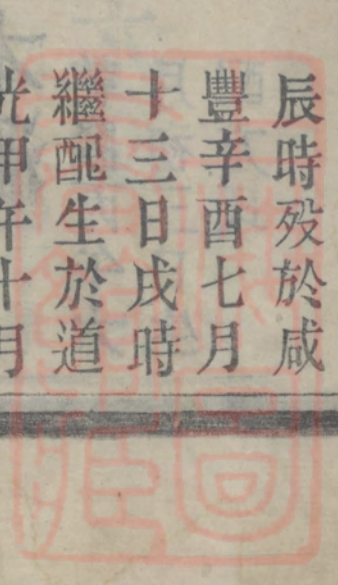 辰時歿於咸
豐辛酉七月
十三日戌時
繼配生於道
光甲午十月